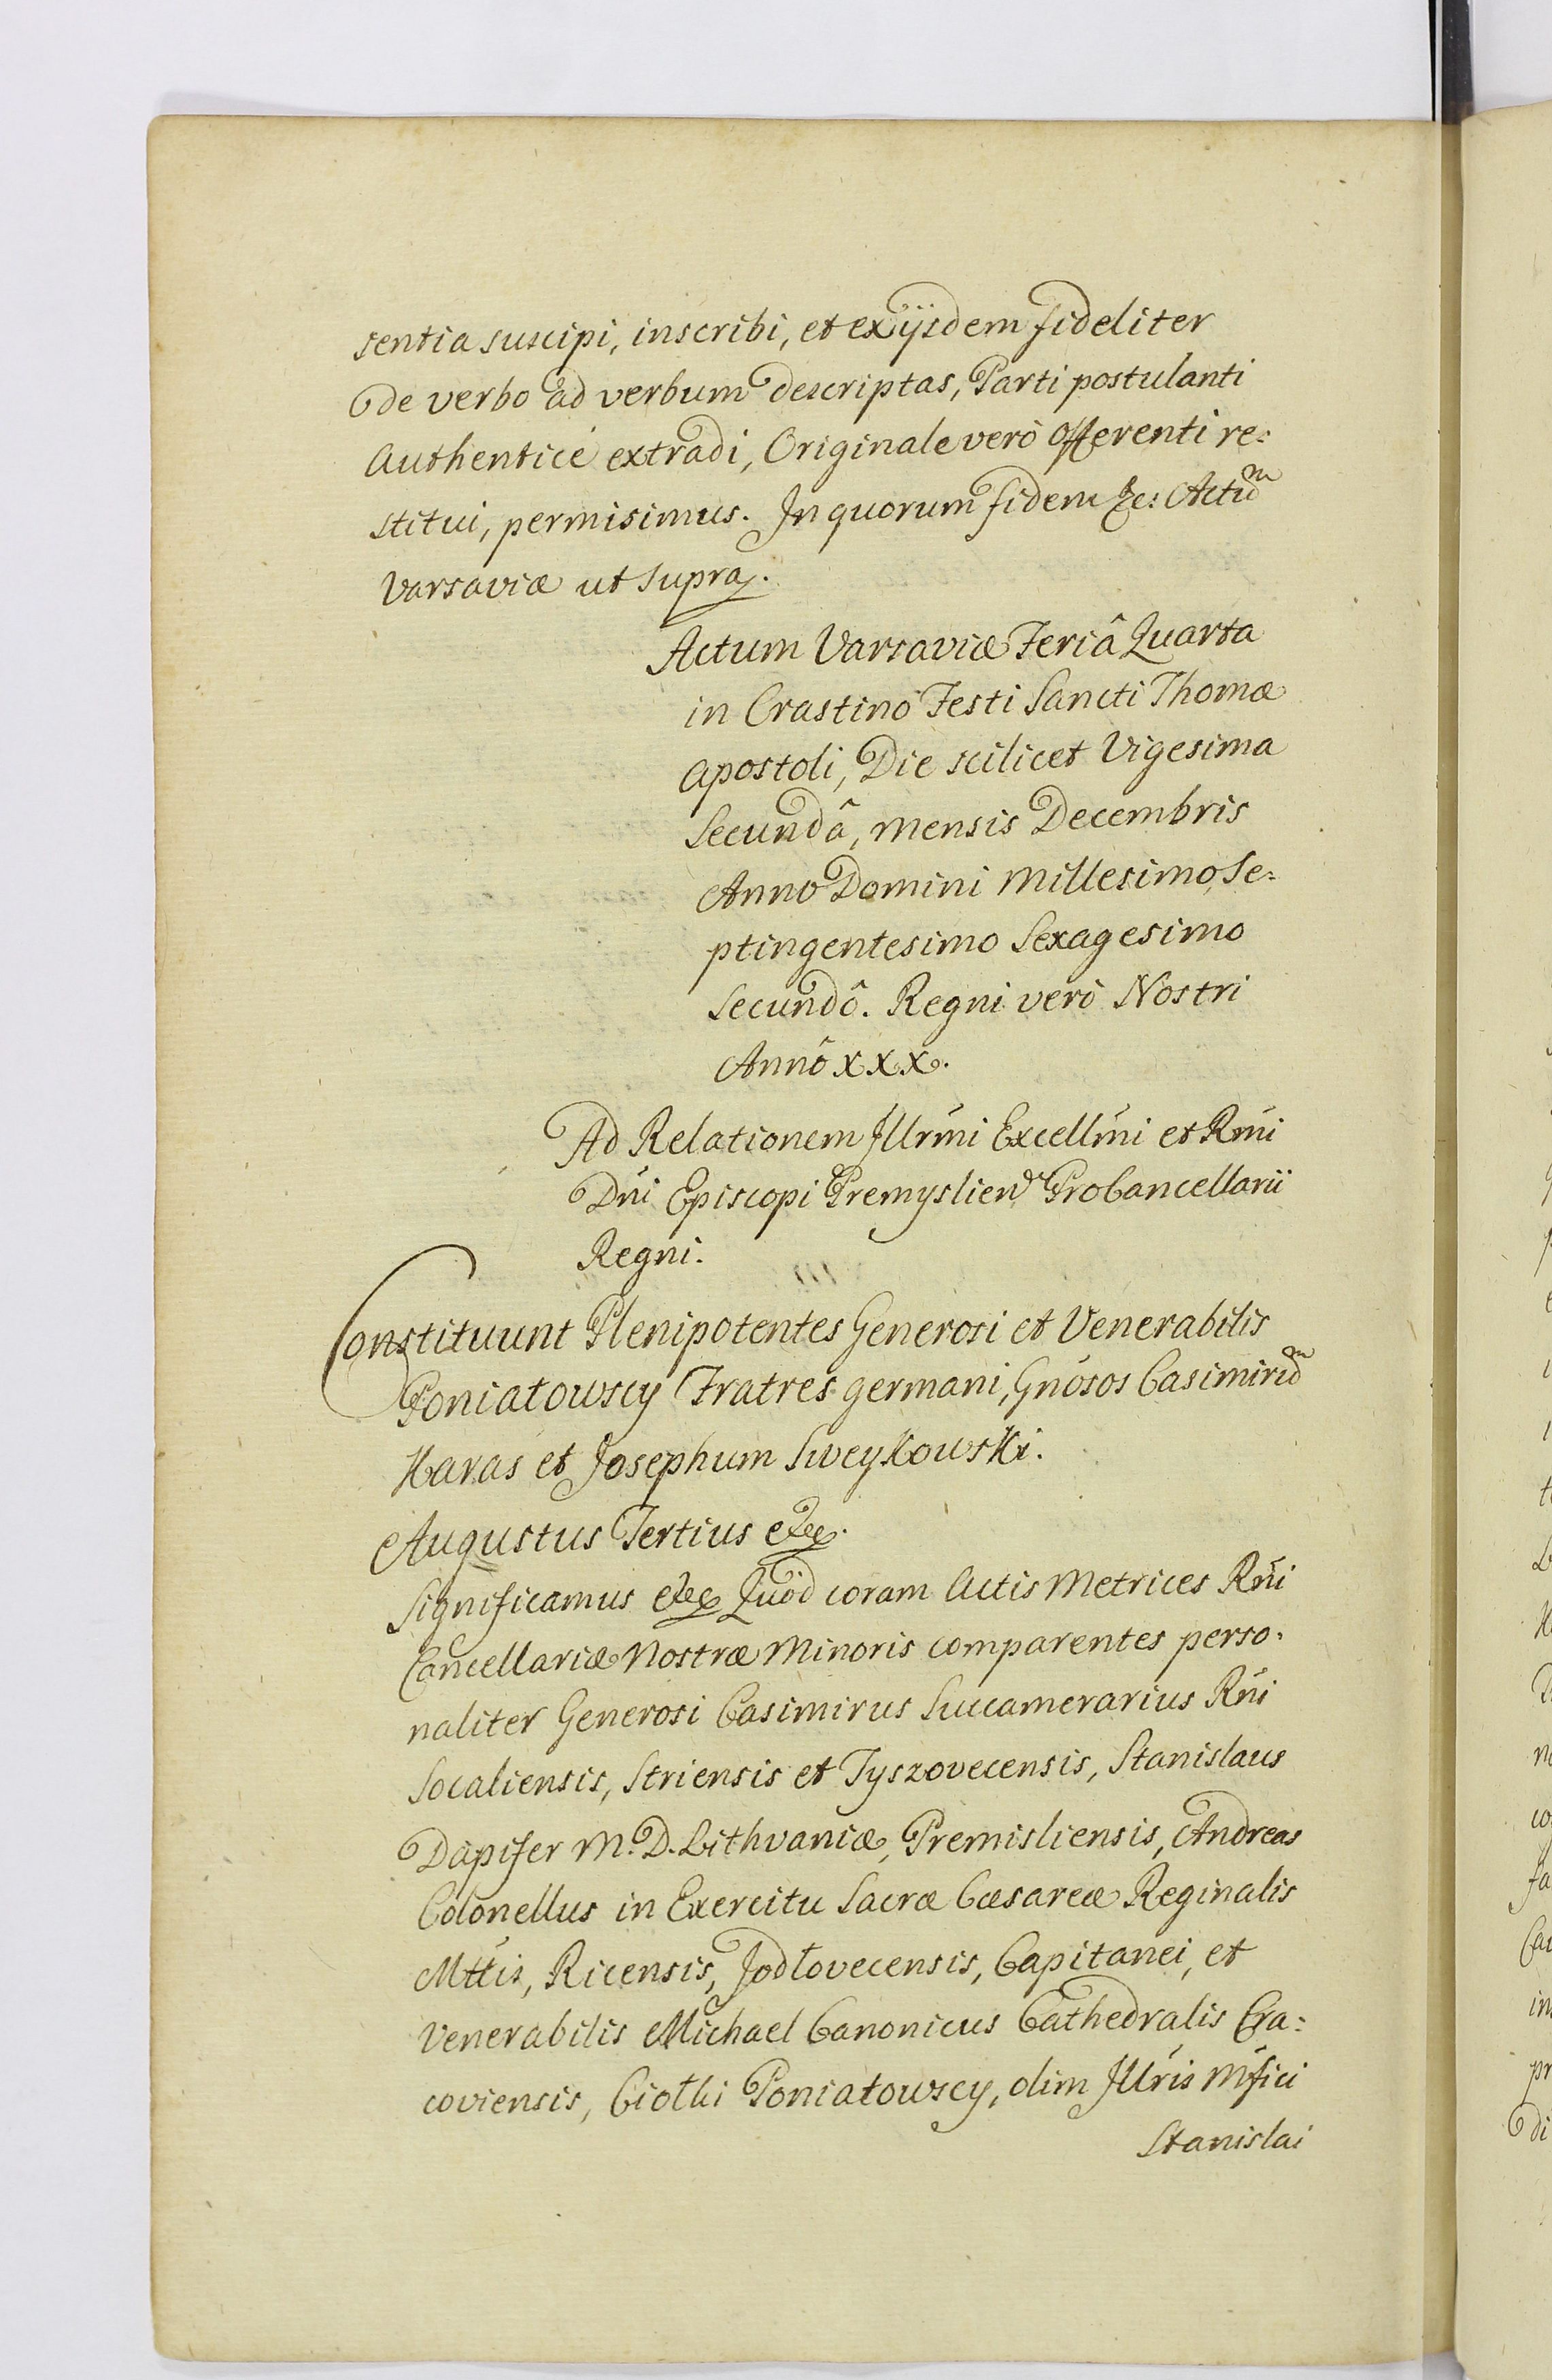 sentia suscipi, inscribi, et ex ijsdem fideliter
de verbo ad verbum descriptas, Parti postulanti
Authenticè extradi, Originale verò offerenti re:
stitui, permisimus. In quorum fidem &c: Actũ
Varsaviæ ut supra.
Actum Varsaviæ Feriâ Quarta
in Crastinô Festi Sancti Thomæ
Apostoli, Die scilicet Vigesima
Secundâ, mensis Decembris
Anno Domini Millesimo, Se:
ptingentesimo Sexagesimo
Secundô. Regni verò Nostri
Annô XXX.
Ad Relationem Illrmi Excellmi et Rmi
Dni Episcopi Premyslien Procancellarii
Regni.
Constituunt Plenipotentes Generosi et Venerabilis
Poniatowscy Fratres germani, Gnosos Casimirũ
Karas et Josephum Sweykowski.
Augustus Tertius etc.
Significamus etc Quod coram Actis Metrices Rni
Cancellariæ Nostræ Minoris comparentes perso:
naliter Generosi Casimirus Succamerarius Rni
Socaliensis, Striensis et Tyszovecensis, Stanislaus
Dapifer M. D. Lithvaniæ, Premisliensis, Andreas
Colonellus in Exercitu Sacræ Cæsareæ Reginalis
Mttis, Ricensis, Jodłovecensis, Capitanei, et
Venerabilis Michael Canonicus Cathedralis Cra:
coviensis, Ciołki Poniatowscy, olim Illris Mfici
Stanislai